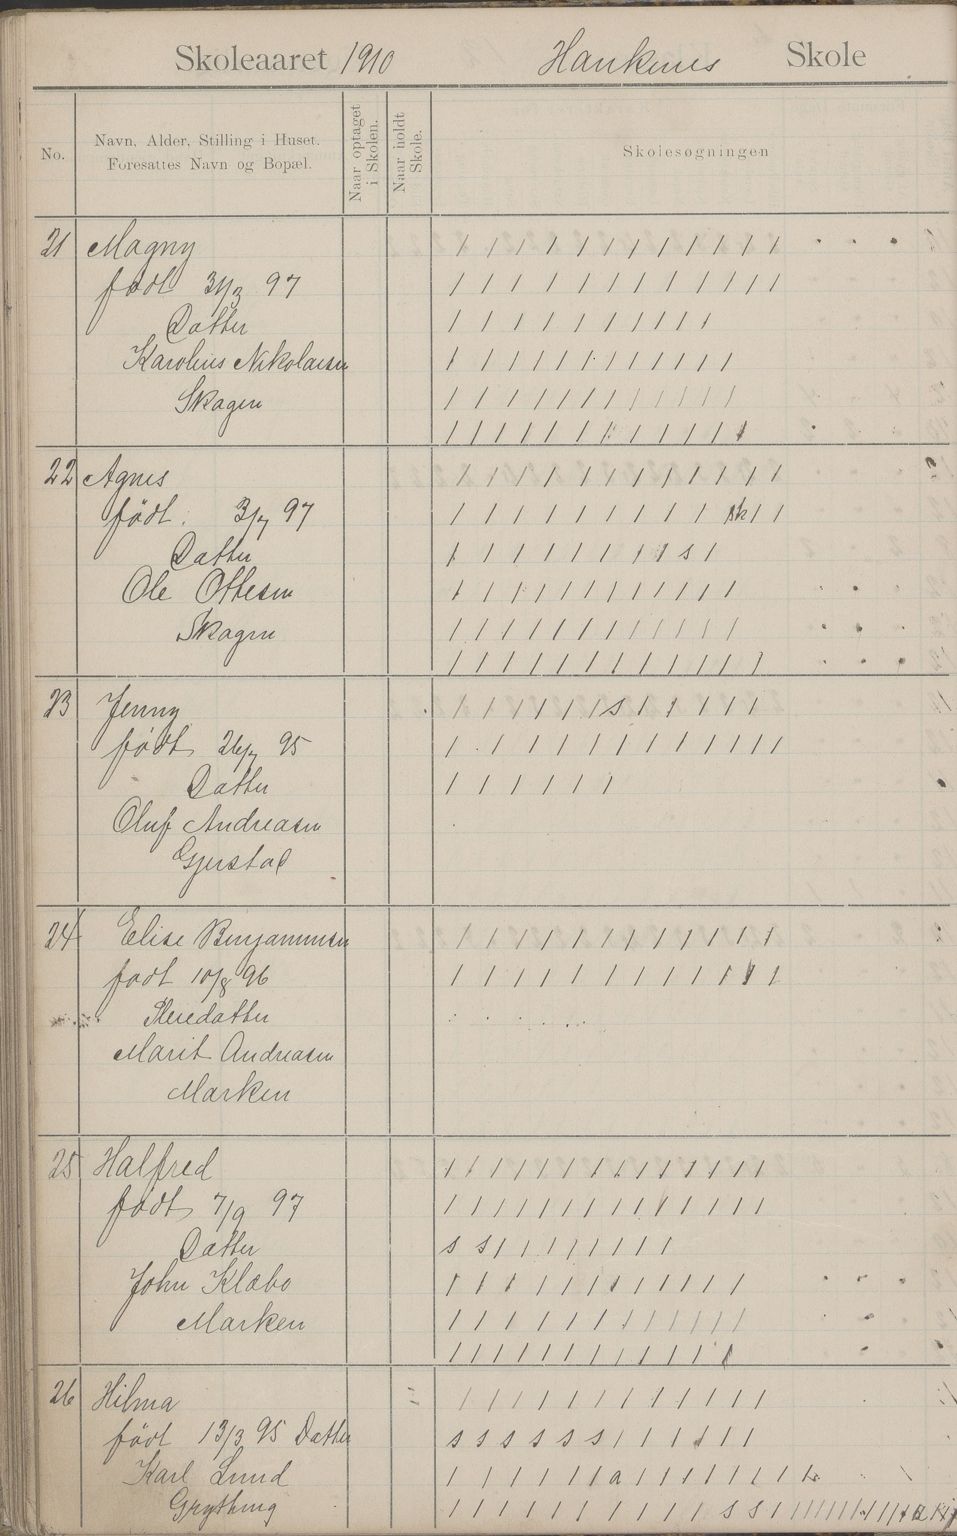 Skoleaaret 1910 Hanknes Skole
No. Navn, Alder, Stilling i Huset. Foresattes Navn og Bopæl. Naar optaget i Skolen. Naar holdt Skole. Skolesøgningen
21 Magny
født 31/3 97
Datter
Karolius Nikolaisen
Skagen
22 Agnes
født. 3/7 97 sk
Datter s
Ole Ottesen
Skagen
23 Jenny s
født 26/7 95
Datter
Oluf Andreasen
Gjerstad
24 Elise Benjaminsen
født 10/8 96
Pleiedatter
Marit Andreasen
Marken
25 Halfred
født 7/9 97
Datter s s
John Klæbo
Marken
26 Hilma
født 13/3 95 Datter s s s s s s
Karl Lund a
Grytting s s